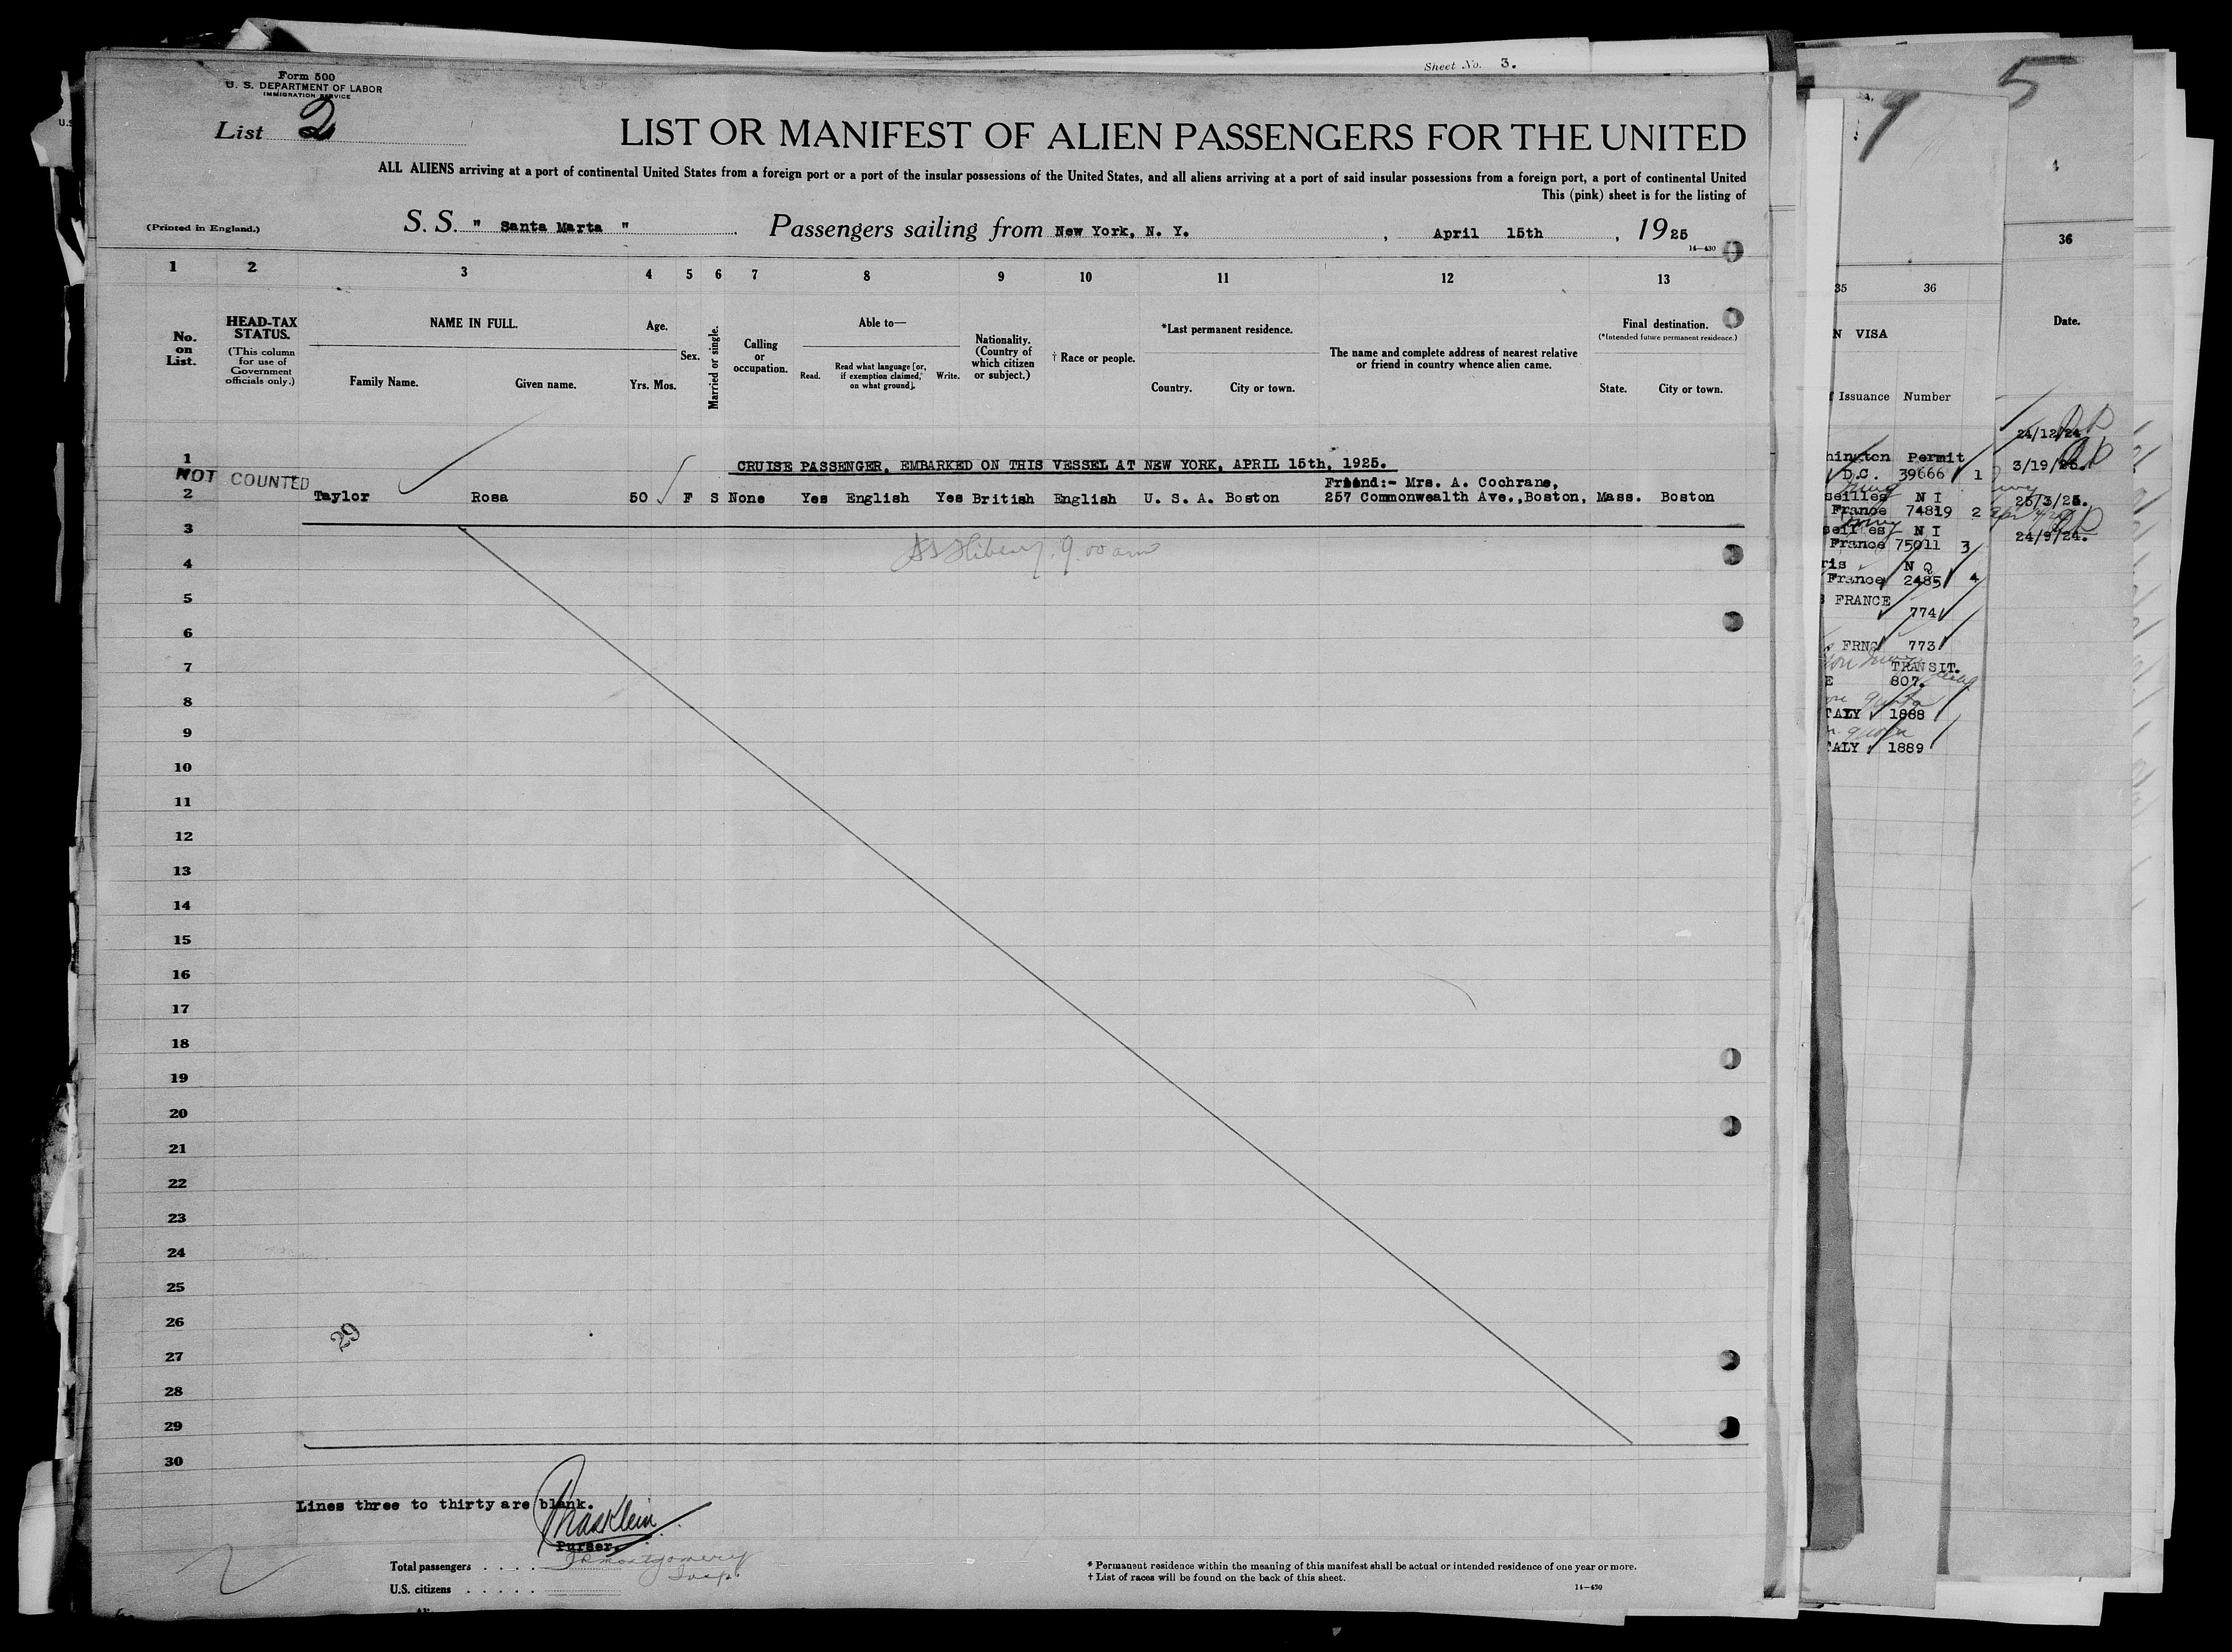 Sheet No. 3.
Form 500
U. S. DEPARTMENT OF LABOR
IMMIGRATION SERVICE
List 2
LIST OR MANIFEST OF ALIEN PASSENGERS FOR THE UNITED
ALL ALIENS arriving at a port of continental United States from a foreign port or a port of the insular possessions of the United States, and all aliens arriving at a port of said insular possessions from a foreign port, a port of continental United
This (pink) sheet is for the listing of
(Printed in England.)
S. S. " Santa Marta " Passengers sailing from New York, N. Y., April 15th, 1925
14—430
1 2 3 4 5 6 7 8 9 10 11 12 13
No. on List.
HEAD-TAX STATUS.
(This column for use of Government officials only.)
NAME IN FULL.
Family Name. Given name.
Age.
Yrs. Mos.
Sex.
Married or single.
Calling or occupation.
Able to—
Read. Read what language [or, if exemption claimed, on what ground]. Write.
Nationality. (Country of which citizen or subject.)
† Race or people.
*Last permanent residence.
Country. City or town.
The name and complete address of nearest relative or friend in country whence alien came.
Final destination.
(*Intended future permanent residence.)
State. City or town.
1 CRUISE PASSENGER, EMBARKED ON THIS VESSEL AT NEW YORK, APRIL 15th, 1925.
NOT COUNTED
Friend:- Mrs. A. Cochrane,
2 Taylor Rosa 50 F S None Yes English Yes British English U. S. A. Boston 257 Commonwealth Ave.,Boston, Mass. Boston
3
4
5
6
7
8
9
10
11
12
13
14
15
16
17
18
19
20
21
22
23
24
25
26
29
27
28
29
30
Lines three to thirty are blank.
Chas Klein
Purser.
Total passengers . . . .
U.S. citizens . . . . .
* Permanent residence within the meaning of this manifest shall be actual or intended residence of one year or more.
† List of races will be found on the back of this sheet.
14—430
9
35 36
N VISA
Issuance Number
hington Permit
D.C. 39666 1
seilles N I
France 74819 2
seilles N I
France 75011 3
ris N Q
France 2485 4
FRANCE
774
FRNC 773
TRANSIT.
E 807.
TALY 1888
TALY 1889
5
36
Date.
24/12/24.
3/19/25.
25/3/25.
24/9/24.